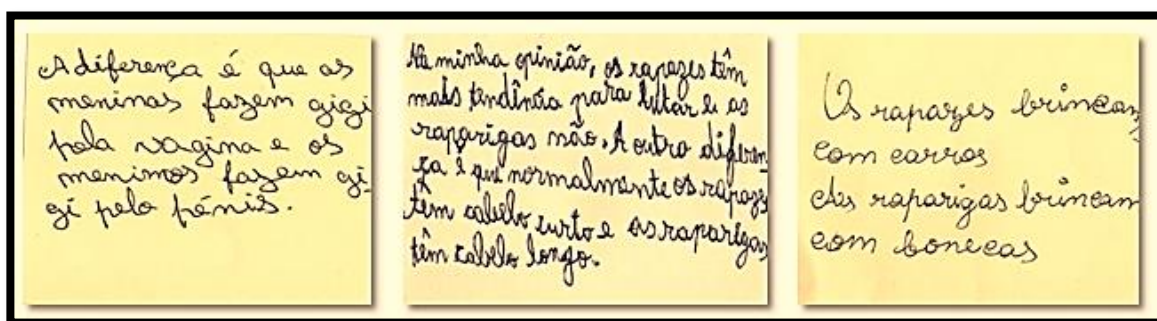 A diferença é que as
meninas fazem gigi
pela vagina e os
meninos fazem gi-
gi pelo pénis.
Na minha opinião, os rapazes têm
mais tendência para lutar e as
raparigas não. A outra diferen-
ça é que normalmente os rapazes
têm cabelo curto e as raparigas
têm cabelo longo.
Os rapazes brincam
com carros
As raparigas brincam
com bonecas